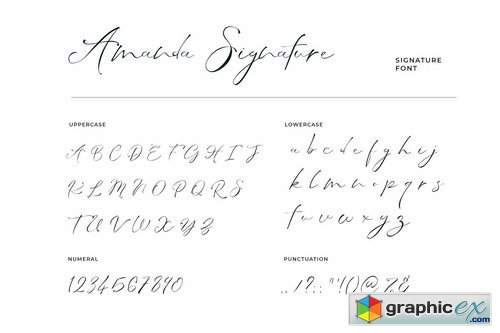 Amanda Signature
SIGNATURE
FONT
UPPERCASE
A B C D E F G H I J
K L M N O P Q R S
T U V W X Y Z
LOWERCASE
a b c d e f g h i j
k l m n o p q r s
t u v w x y z
NUMERAL
1234567890
PUNCTUATION
graphicex
.com